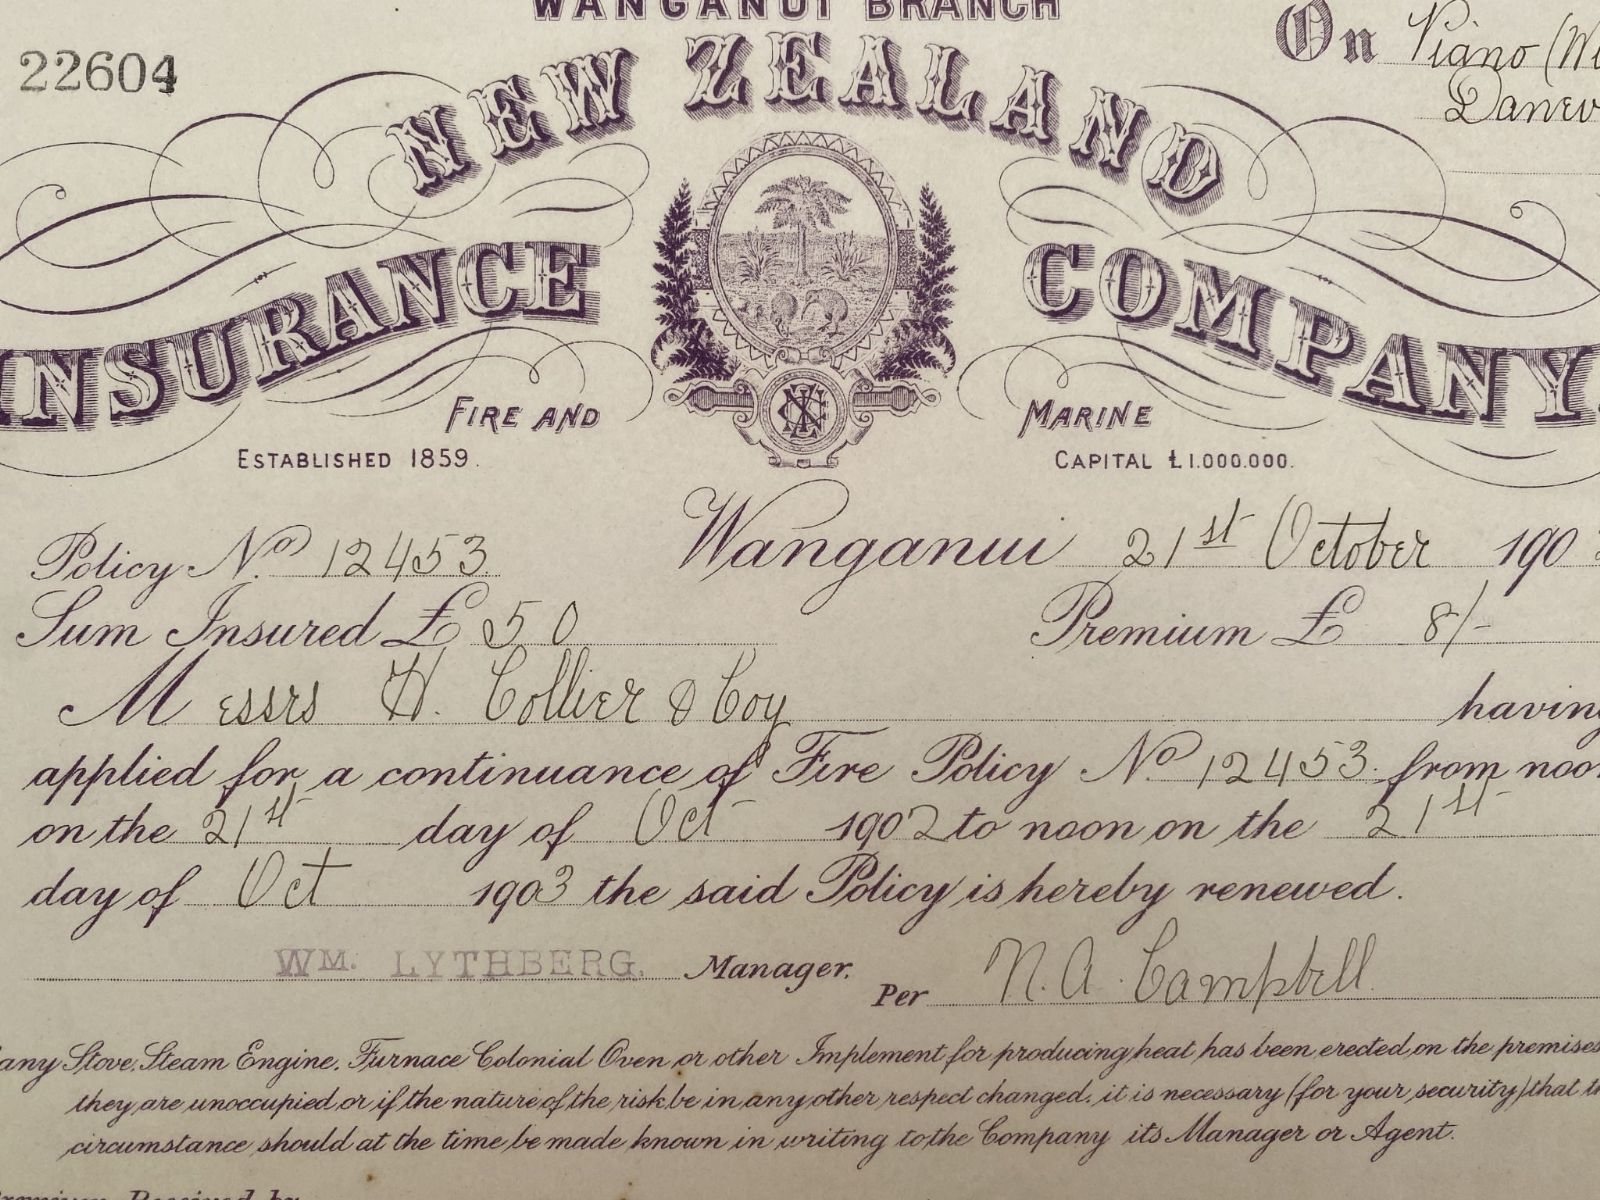 WANGANUI BRANCH
22604
On Piano
NEW ZEALAND
INSURANCE COMPANY.
FIRE AND MARINE
ESTABLISHED 1859. CAPITAL £1.000.000.
Policy No. 12453 Wanganui 21st October 190
Sum Insured £ 50 Premium £ 8/-
Messrs H. Collier & Coy having
applied for a continuance of Fire Policy No 12453. from noon
on the 21st day of Oct 1902 to noon on the 21st
day of Oct 1903 the said Policy is hereby renewed.
WM. LYTHBERG. Manager.
Per N. A. Campbell
any Stove, Steam Engine, Furnace Colonial Oven or other Implement for producing heat has been erected on the premises
they are unoccupied or if the nature of the risk be in any other respect changed, it is necessary (for your security) that
circumstance should at the time be made known in writing to the Company its Manager or Agent.